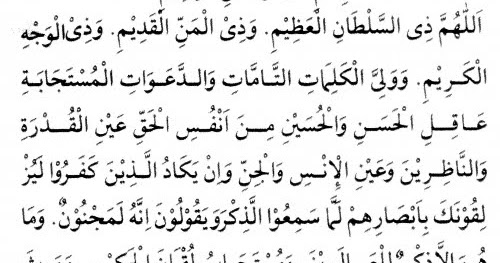 اَللّٰهُمَّ ذِى السَّلْطَانِ الْعَظِيْمِ. وَذِى الْمَنِّ الْقَدِيْمِ. وَذِى الْوَجْهِ
الْكَرِيْمِ. وَوَلِيَّ الْكَلِمَاتِ التَّامَّاتِ وَالدَّعَوَاتِ الْمُسْتَجَابَةِ
عَاقِلِ الْحَسَنِ وَالْحُسَيْنِ مِنَ اَنْفُسِ الْحَقِّ عَيْنِ الْقُدْرَةِ
وَالنَّاظِرِيْنَ وَعَيْنِ الْإِنْسِ وَالْجِنِّ وَاِنْ يَكَادُ الَّذِيْنَ كَفَرُوْا لَيُزْ
لِقُوْنَكَ بِاَبْصَارِهِمْ لَمَّا سَمِعُوْا الذِّكْرَ وَيَقُوْلُوْنَ اِنَّهُ لَمَجْنُوْنٌ. وَمَا